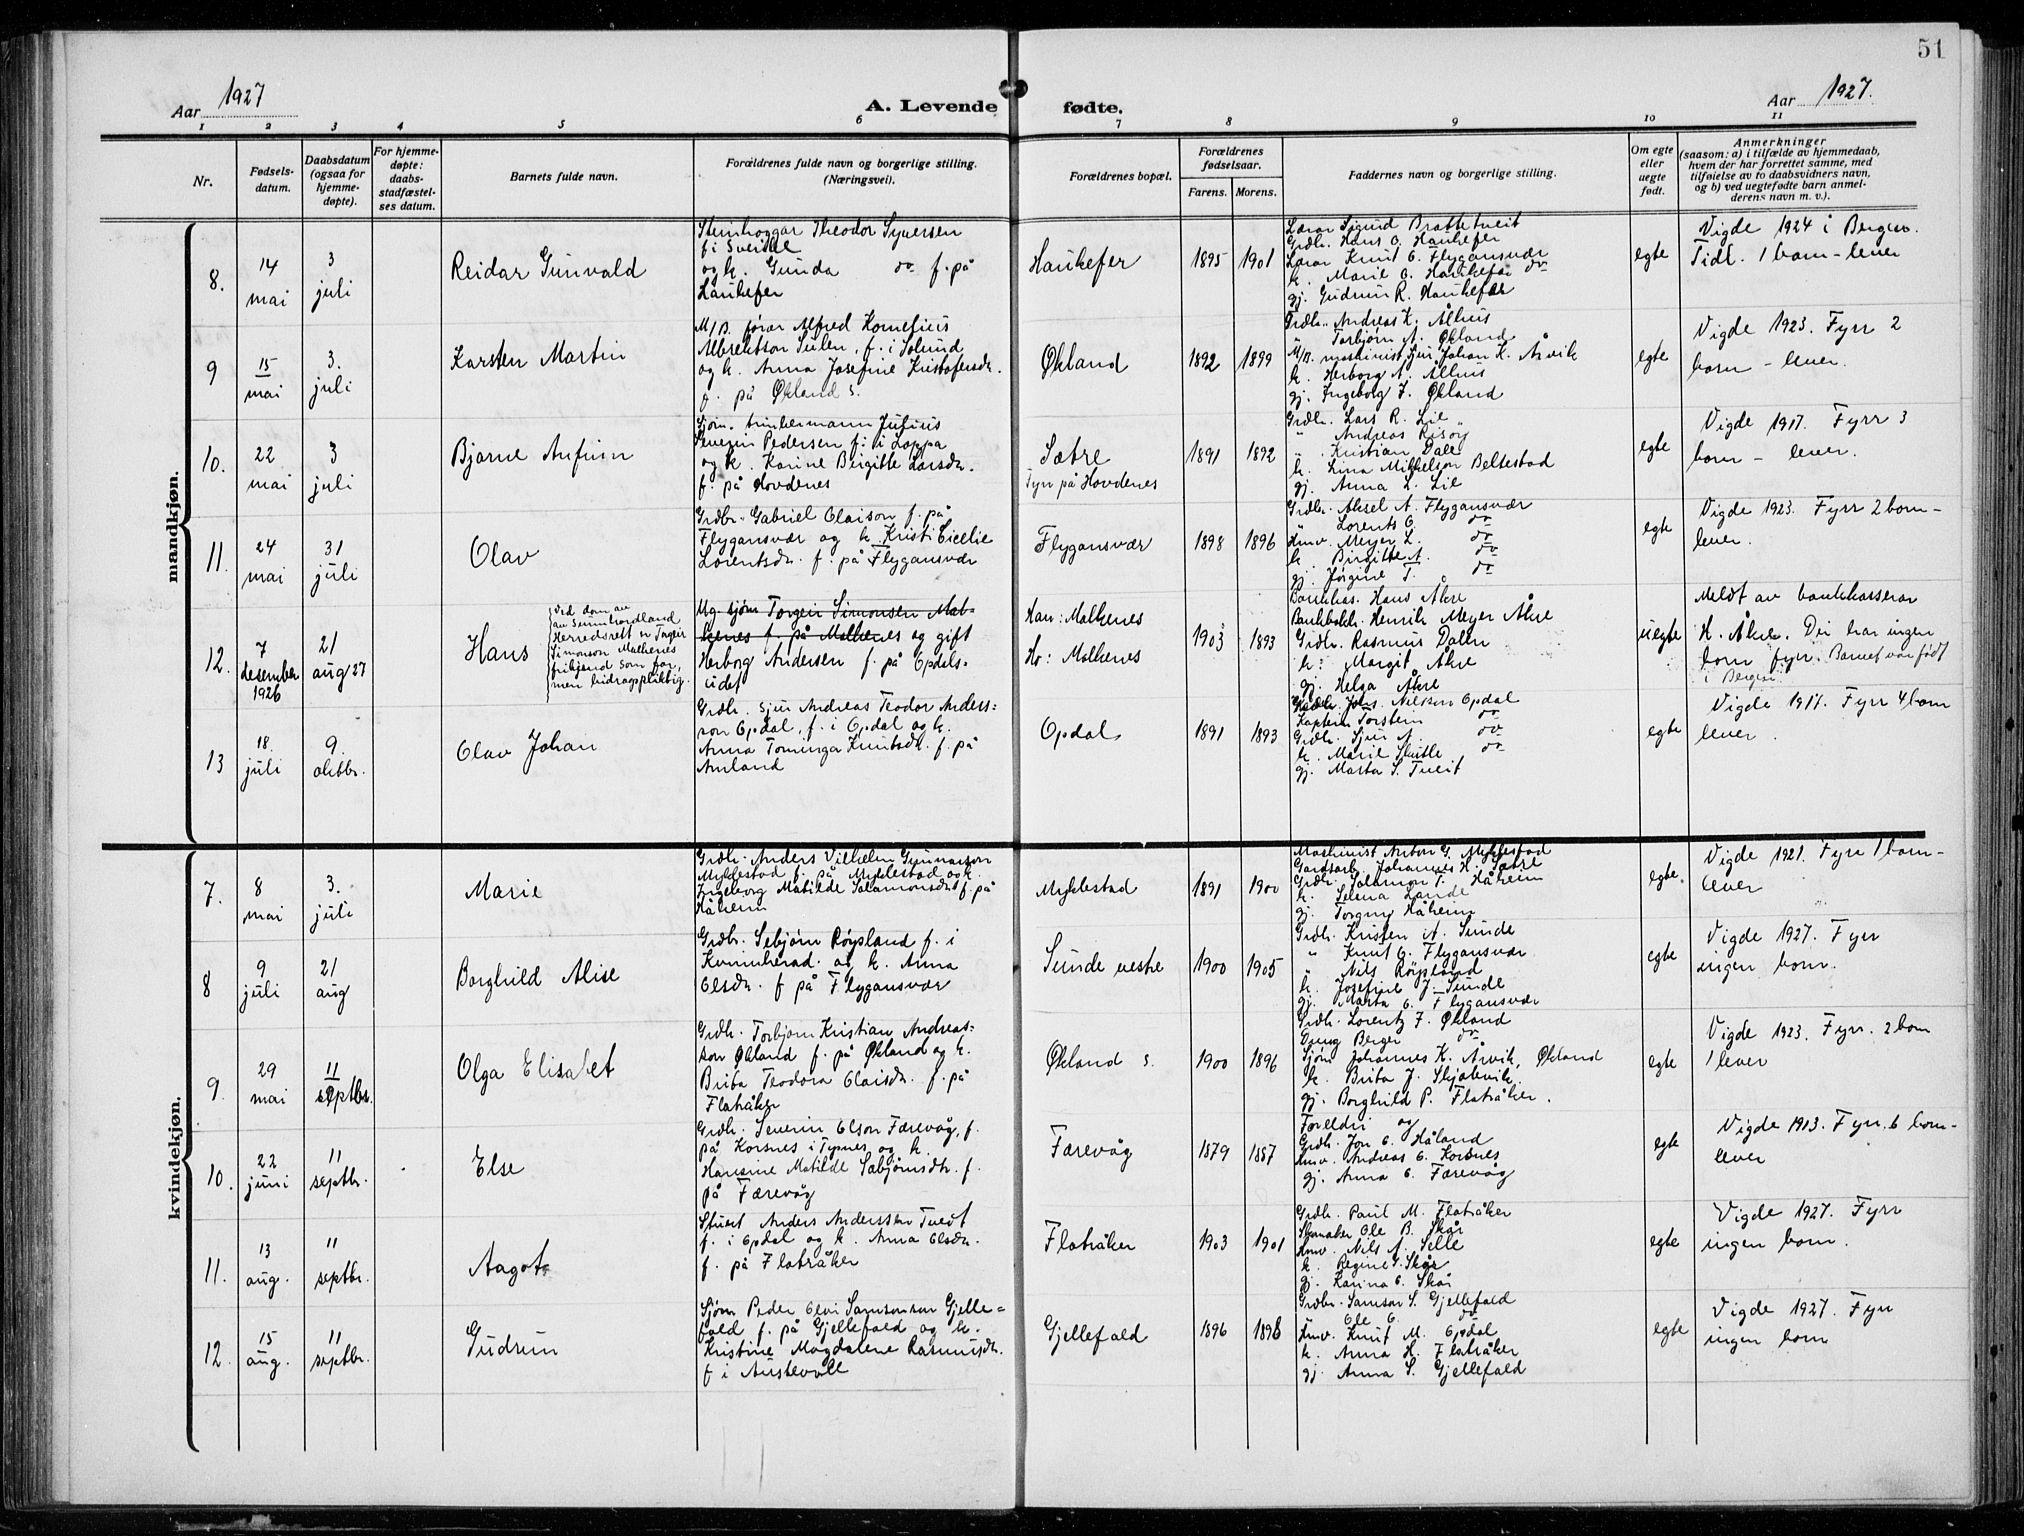 51
Aar 1927
A. Levende fødte.
Aar 1927.
1 2 3 4 5 6 7 8 9 10 11
Nr.
Fødsels-
datum.
Daabsdatum
(ogsaa for
hjemme-
døpte).
For hjemme-
døpte:
daabs-
stadfæstel-
ses datum.
Barnets fulde navn.
Forældrenes fulde navn og borgerlige stilling.
(Næringsvei).
Forældrenes bopæl.
Forældrenes
fødselsaar.
Farens. Morens.
Faddernes navn og borgerlige stilling.
Om egte
eller
uegte
født.
Anmerkninger
(saasom: a) i tilfælde av hjemmedaab,
hvem der har forrettet samme, med
tilføielse av to daabsvidners navn,
og b) ved uegtefødte barn anmel-
derens navn m. v.).
mandkjøn.
8.
14
mai
3
juli
Reidar Gunvald
Steinhoggar Theodor Syversen
f. i Sverike
og k. Gunda do f. på
Haukefer
Haukefer
1895 1901
Lærar Sigurd Brattetveit
Grdbr. Hans O. Haukefer
Lærar Knut O. Flygansvær
k. Marie O. Haukefær do
gj. Gudrun R. Haukefær
egte
Vigde 1924 i Bergen.
Tidl. 1 born - lever
9
15
mai
3.
juli
Karsten Martin
M/B. förar Alfred Kornelius
Albrektson Sulen, f. i Solund
og k. Anna Josefine Kristofersdr.
f. på Økland s.
Økland
1892 1899
Grdbr. Andreas K. Ålhus
" Torbjørn A. Økland
M/B. maskinist Sjur Johan K. Årvik
k. Herborg A. Ålhus
gj. Ingeborg J. Økland
egte
Vigde 1923. Fyrr 2
born - lever.
10.
22
mai
3
juli
Bjarne Anfinn
Sjøm. tømmermann Julius
Severin Pedersen f. i Loppa
og k. Karine Birgitte Larsdr.
f. på Hovdenes
Sætre
Fyrr på Hovdenes
1891 1892
Grdbr. Lars R. Lie
" Andreas Risøy
" Kristian Dale
k. Lina Mikkelson Beltestad
gj. Anna L. Lie
egte
Vigde 1917. Fyrr 3
born - lever.
11.
24
mai
31
juli
Olav
Grdbr. Gabriel Olaison f. på
Flygansvær og k. Kristi Cicelie
Lorentsdr. f. på Flygansvær
Flygansvær
1898 1896
Grdbr. Aksel A. Flygansvær
" Lorents O. do
Umv. Meyer L. do
k. Birgitte A. do
gj. Jørgine T. do
egte
Vigde 1923. Fyrr 2 born -
lever.
12.
7
desember
1926
21
aug 27
Hans
Ved dom av
av Sunnhordland
Herredsrett er Torgeir
Simonson Malkenes
frikjend som far,
men bidragspliktig.
Ug. sjøm Torgeir Simonsen Mal-
kenes f. på Malkenes og gift
Herborg Andersen f. på Opdals-
eidet
Han: Malkenes
Ho: Malkenes
1903 1893
Bankkas. Hans Åkre
Bankbokh. Henrik Meyer Åkre
Grdbr. Rasmus Dalen
k. Margit Åkre
gj. Helga Åkre
uegte
Meldt av bankkasserar
H. Åkre. Dei har ingen
born fyrr. Barnet var født
i Bergen.
13
18.
juli
9.
oktbr.
Olav Johan
Grdbr. Sjur Andreas Teodor Anders=
son Opdal, f. i Opdal og k.
Anna Tominga Knutsdtr. f. på
Amland
Opdal
1891 1893
Grdbr. Johs. Nilssen Opdal
Kaptein Torstein do
Grdbr. Sjur A. do
k. Marie Skutle do
gj. Marta S. Tveit
egte
Vigde 1917. Fyrr 4 born
lever.
kvindekjøn.
7.
8
mai
3.
juli
Marie
Grdbr. Anders Vilhelm Gunnarson
Myklestad f. på Myklestad og k.
Ingeborg Matilde Salamonsdr. f. på
Håheim
Myklestad
1891 1900
Maskinist Anton G. Myklestad
Gardsarb. Johannes H. Sætre
Grdbr. Salamon T. Håheim
k. Selena Lande
gj. Torgny Håheim
egte.
Vigde 1921. Fyrr 1 born -
lever
8
9
juli
21
aug
Borghild Alise
Grdbr. Sebjørn Røysland f. i
Kvinnherad og k. Anna
Olsdr. f på Flygansvær
Sunde vestre
1900 1905
Grdbr. Kristen A. Sunde
" Knut O. Flygansvær
" Nils Røysland
k. Josefine J. Sunde
gj. Marta O. Flygansvær
egte
Vigde 1927. Fyrr
ingen born.
9.
29
mai
11
septbr.
Olga Elisabet
Grdbr. Torbjørn Kristian Andreas=
son Økland f. på Økland og k.
Brita Teodora Olaisdr. f. på
Flatråker
Økland s.
1900 1896
Grdbr. Lorentz J. Økland
Dreng Berger do
Sjøm Johannes K. Årvik, Økland
k. Brita J. Skjelevik.
gj. Borghild P. Flatråker.
egte
Vigde 1923. Fyrr. 2 born
1 lever
10.
22
juni
11
septbr.
Else
Grdbr. Severin Olson Færevåg, f.
på Korsnes i Tysnes og k.
Hansine Matilde Sabjørnsdtr. f.
på Færevåg
Færevåg
1879 1887
Foreldri og
Grdbr. Jon O. Håland
Umv. Andreas O. Korsnes
gj. Anna O. Færevåg
egte
Vigde 1913. Fyrr. 6 born -
lever
11.
13
aug.
11
septbr.
Aagot
Stuert Anders Anderssen Tvedt
f. i Opdal og k. Anna Olsdr.
f. på Flatråker
Flatråker
1903 1901
Grdbr. Paul M. Flatråker
Skomaker Ole B. Skår
Umv. Nils A. Selle
k. Regine S. Skår
gj. Karina O. Skår
egte
Vigde 1927. Fyrr
ingen born.
12.
15
aug.
11
septbr.
Gudrun
Sjøm Peder Olvi Samsonson Gjelle=
fald f. på Gjellefald og k.
Kristine Magdalene Rasmusdr.
f i Austevoll
Gjellefald
1896 1898
Grdbr. Samson S. Gjellefald
Ole O. do
Umv. Knut M. Opdal
k. Anna H. Flatråker
gj. Anna S. Gjellefald
egte
Vigde 1927. Fyrr
ingen born